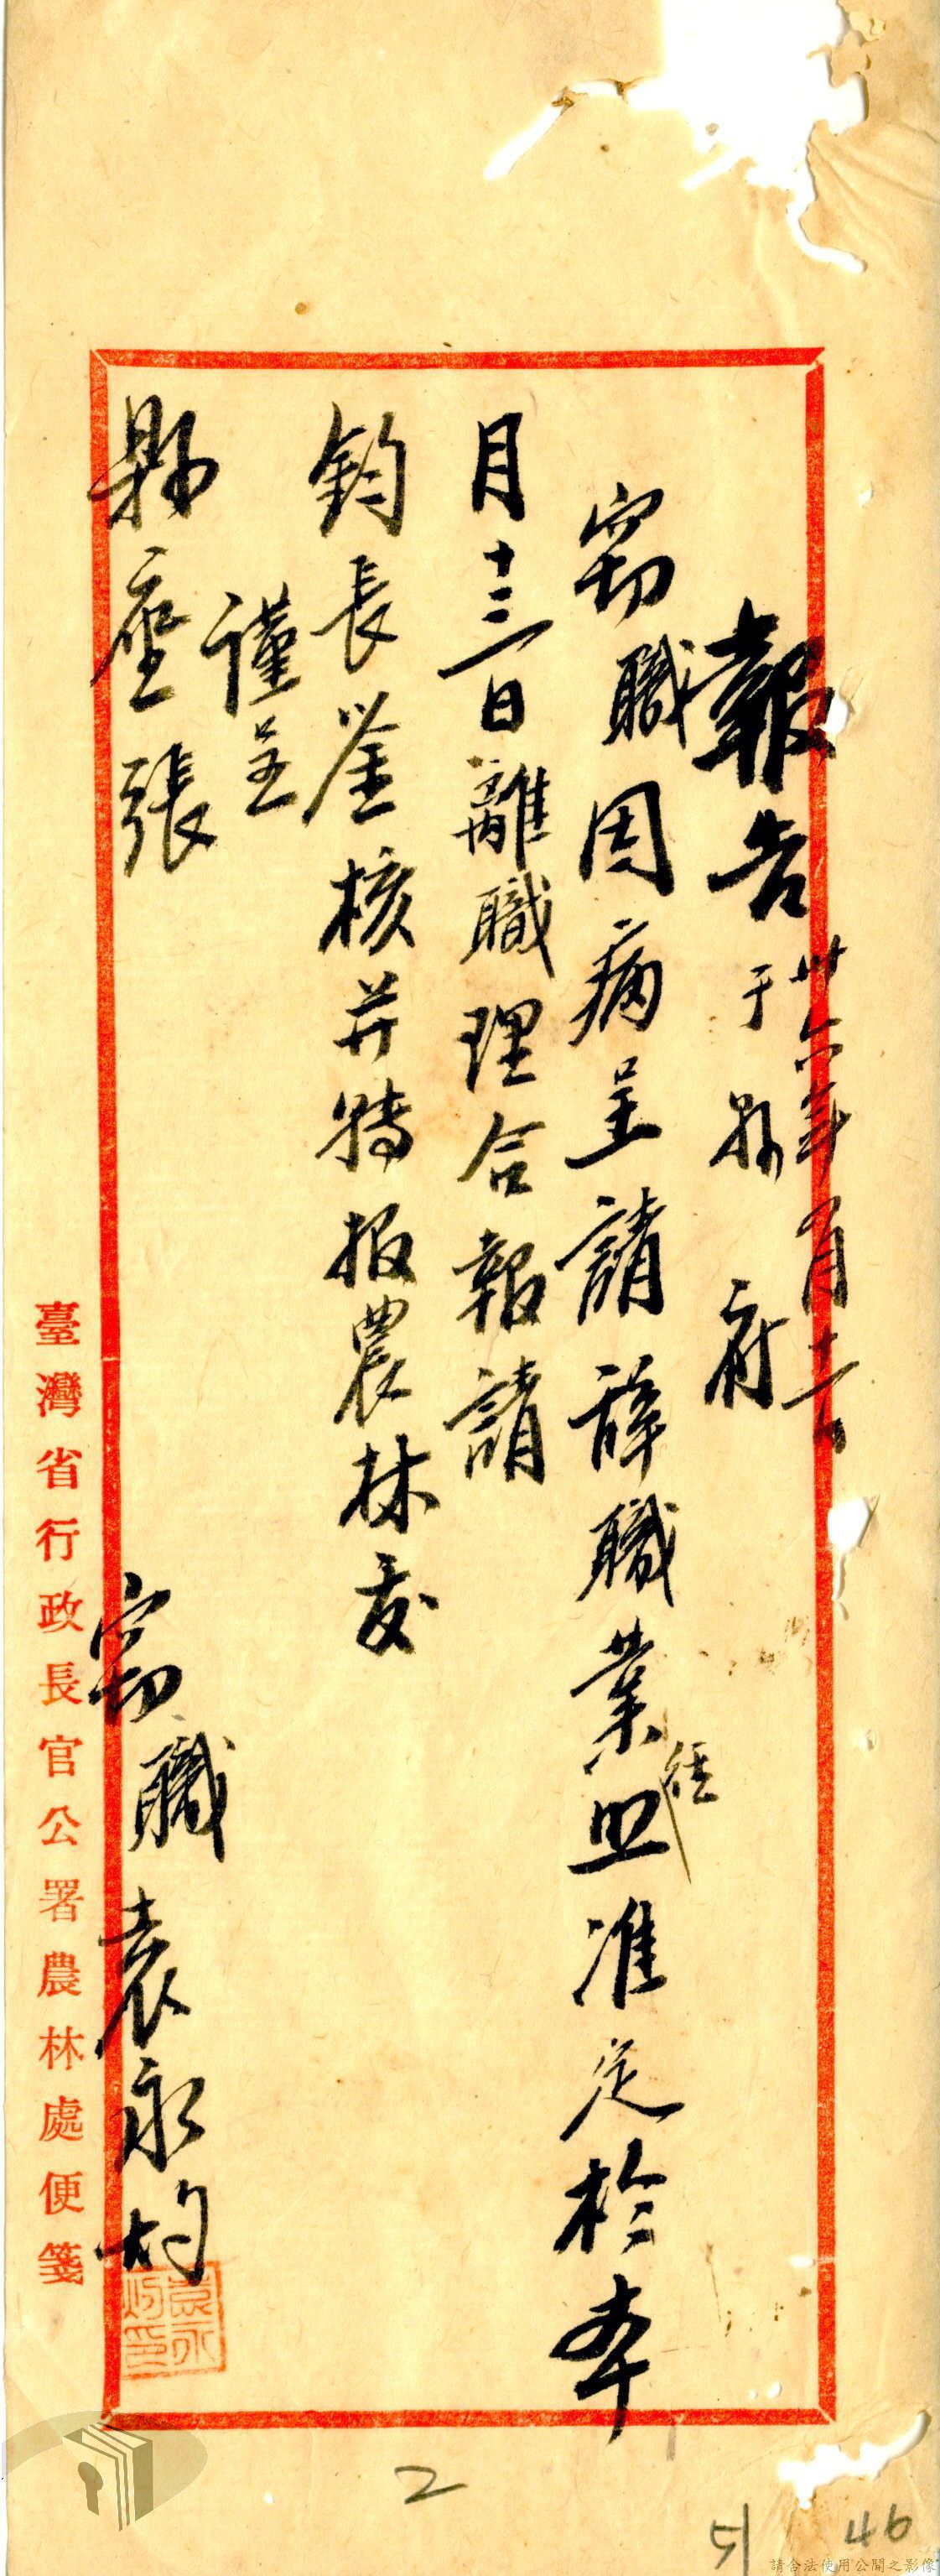 報告 卅六年一月十一日
于縣府
竊職因病呈請辭職業經照准定於本
月十三日離職理合報請
鈞長鑒核并轉报農林處
謹呈
縣座張
竊職袁永均
袁永均印
臺灣省行政長官公署農林處便箋
2
51 46
請合法使用公開之影像